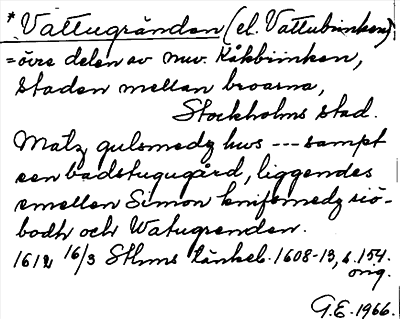 * Vattugränden (el. Vattubrinken)
= övre delen av nuv. Kåkbrinken,
staden mellan broarna,
Stockholms stad.
Matz gulsmedz hus --- sampt
een badstugugård, liggendes
emellen Simon knifsmedz siö-
bodh och Watugrenden.
1612 16/3 Sthms tänkeb. 1608-13, s. 154.
orig.
G.E. 1966.